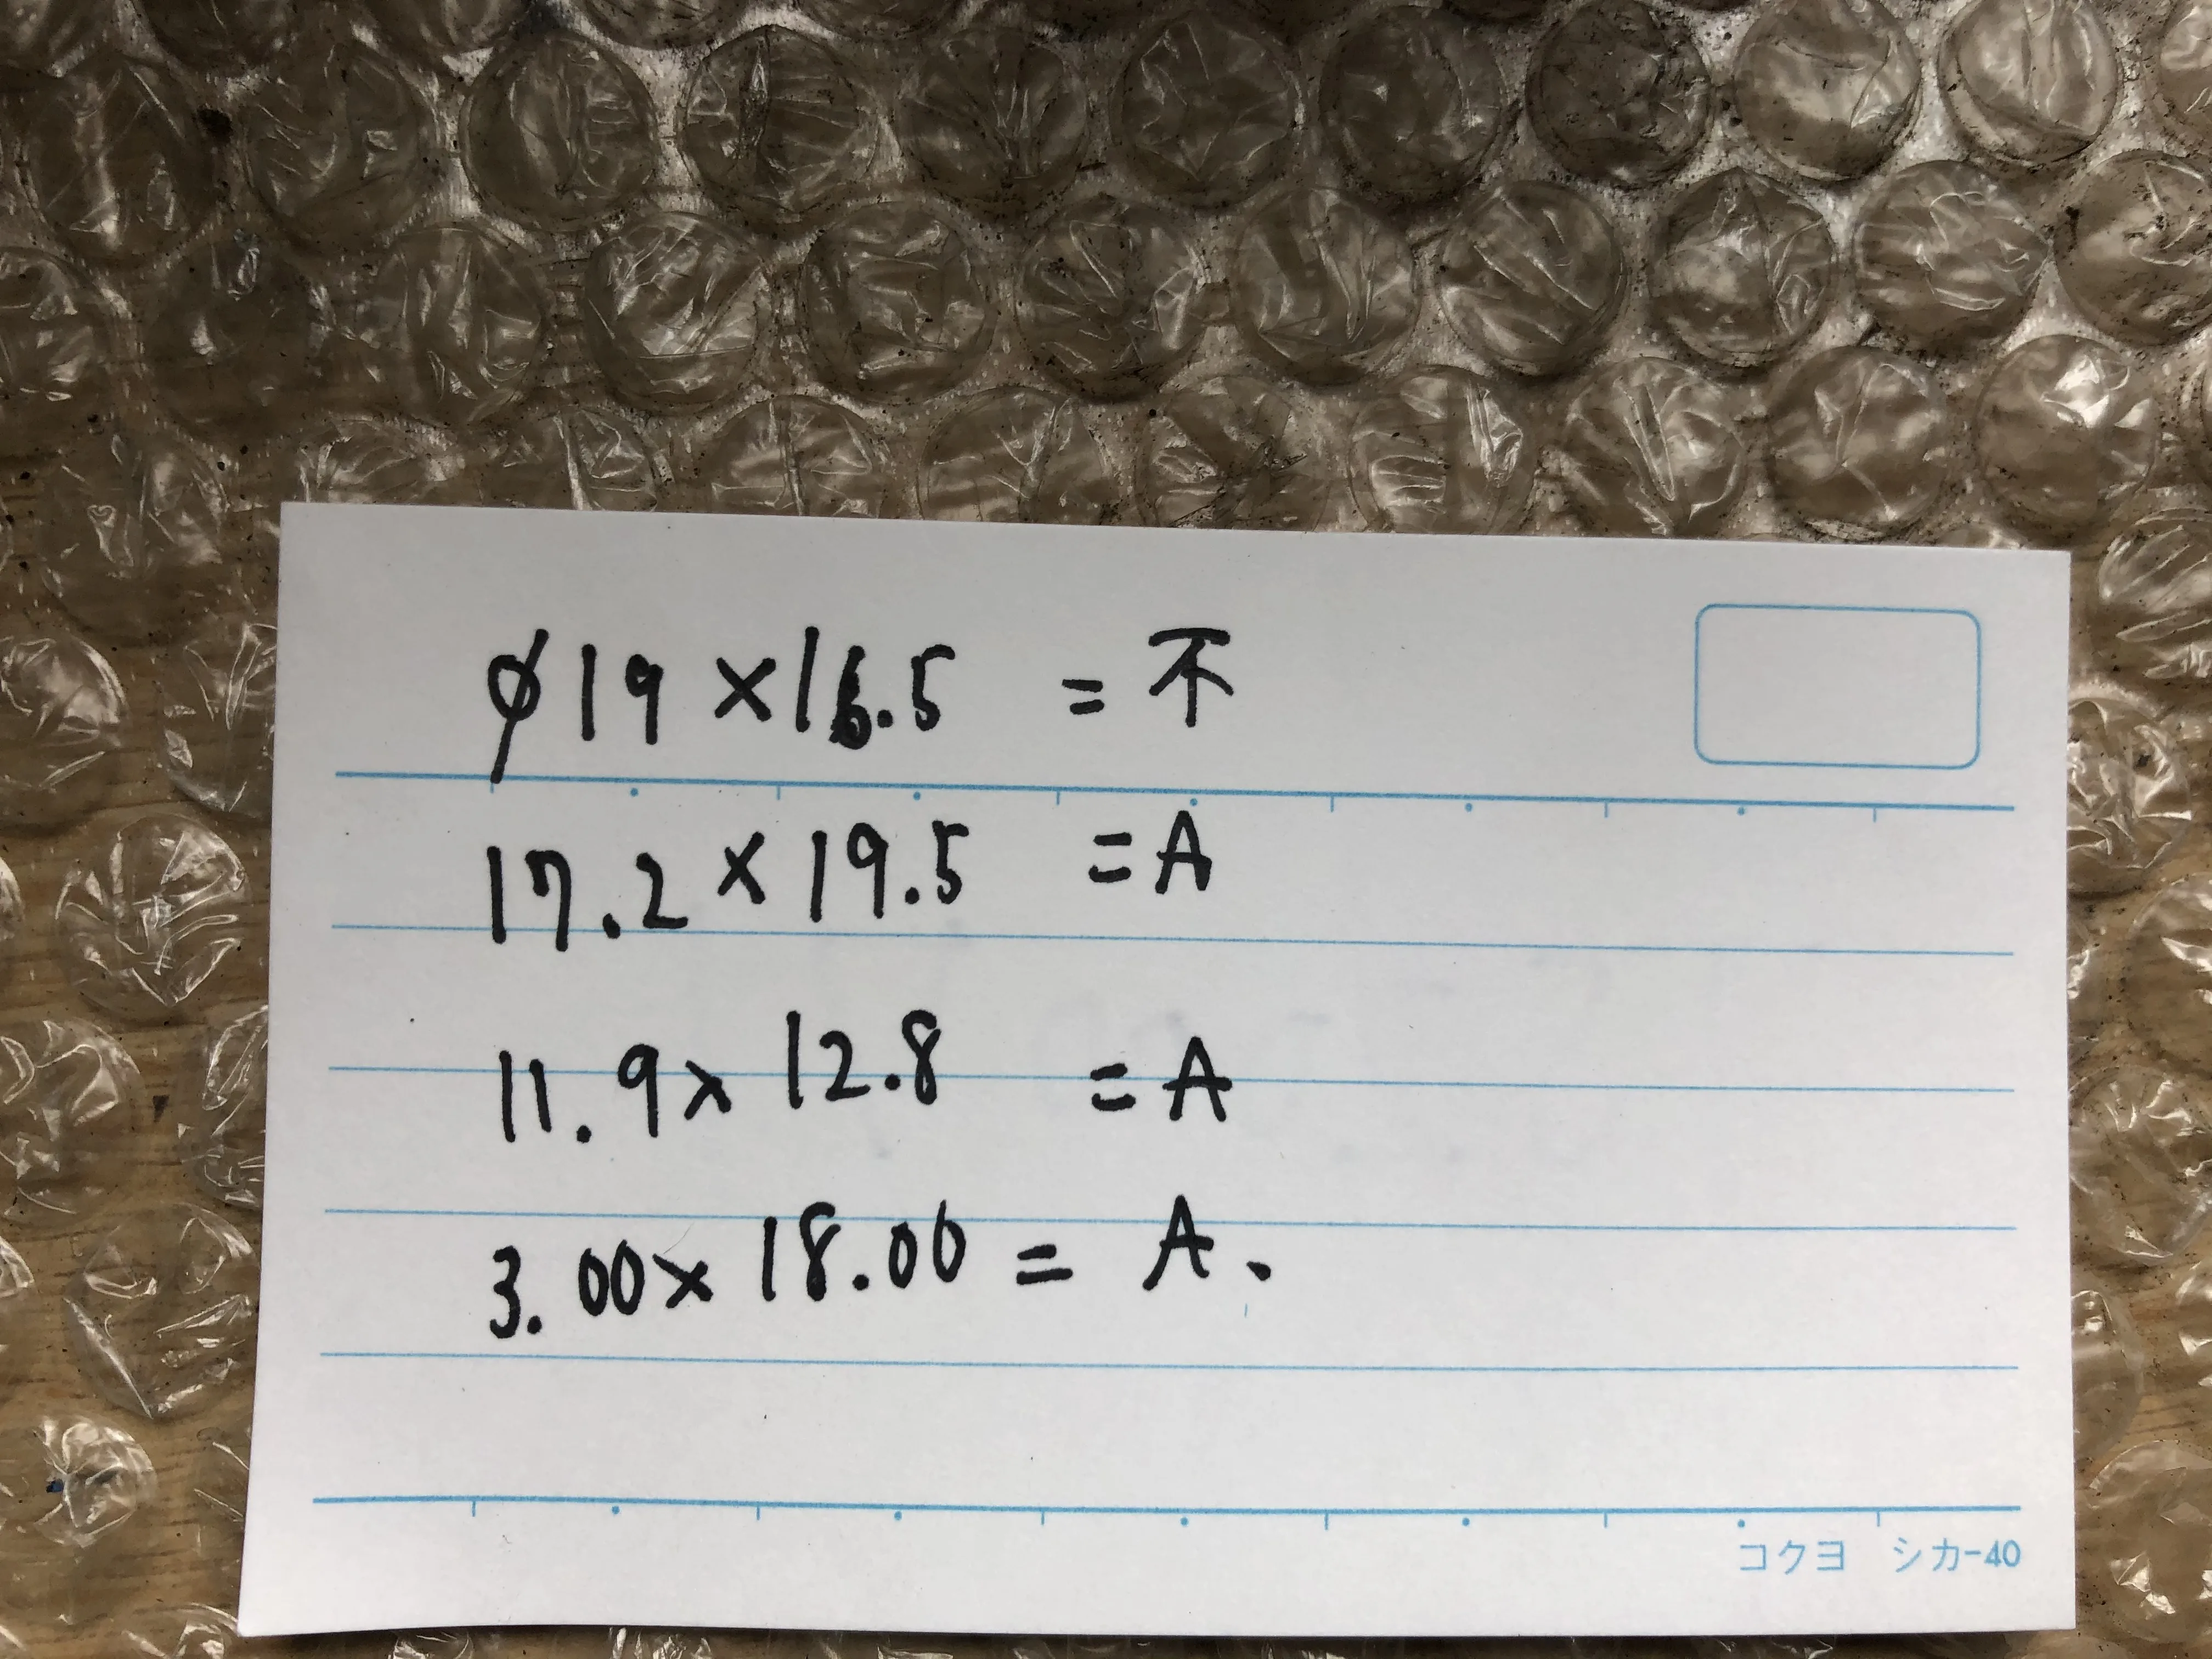 φ19×16.5 = 不
17.2×19.5 = A
11.9× 12.8 = A
3.00× 18.00 = A、
コクヨ シカ-40